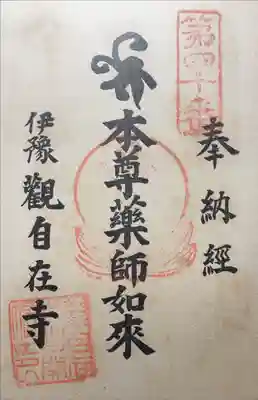 第四十番
奉納經
本尊藥師如來
伊豫 觀自在寺